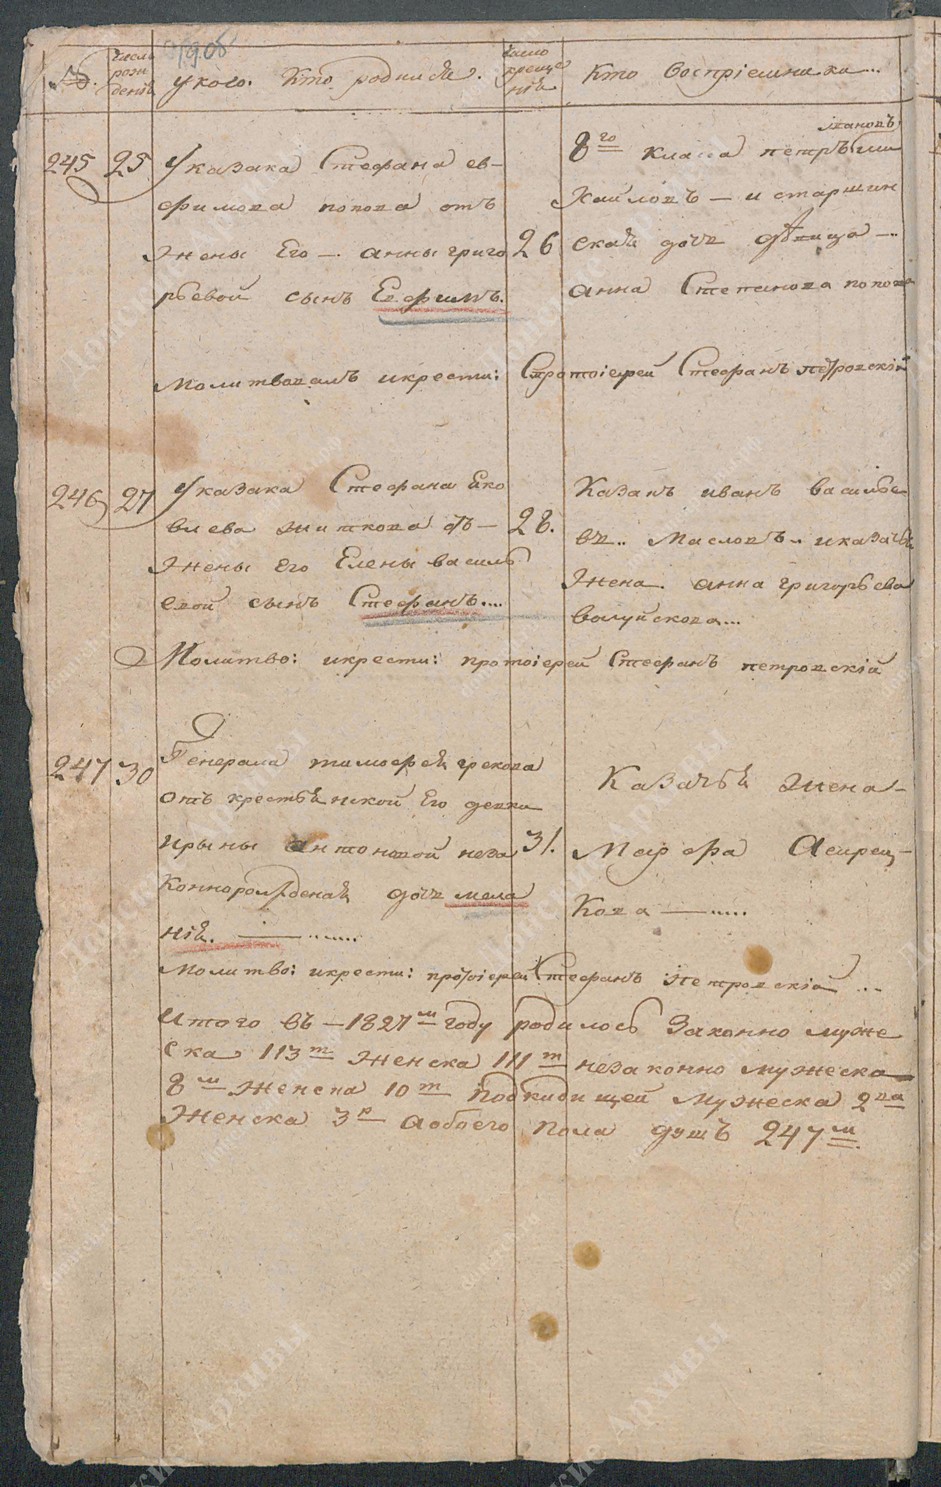 №.
число рожденія
у кого. кто родился.
число крещенія
кто воспріемники...
245 25 У казака Стефана ев-
фимова попова отъ
жены его — анны григо
рьевой сынъ Ефимъ.
26
8го класса петръ ми
хайловъ — и старшин
ская дочь девица —
анна Степанова попова
Молитвовалъ и крести: Протоіерей Стефанъ петровскій
246 27 У казака Стефана Яко
влева житкова отъ —
жены его Елены василь
евой сынъ Стефанъ....
28.
Казакъ иванъ василье
въ.. Масловъ. и казачья
жена. анна григорьева
валуйскова...
Молитво: и крести: протоіерей Стефанъ петровскій
247 30 Генерала тимофея грекова
отъ крестьянской его девки
ирыны антоновой неза
коннорожденая дочь мела
нія. — ......
31.
Казачья жена —
Марфа
кова — ....
Молитво: и крести: протоіерей Стефанъ Петровскій ...
Итого въ — 1827м году родилось законно муже
ска 113т женска 111т незаконно мужеска
8м женска 10т подкидищей мужеска 2ва
женска 3р а обоего пола душъ 247м